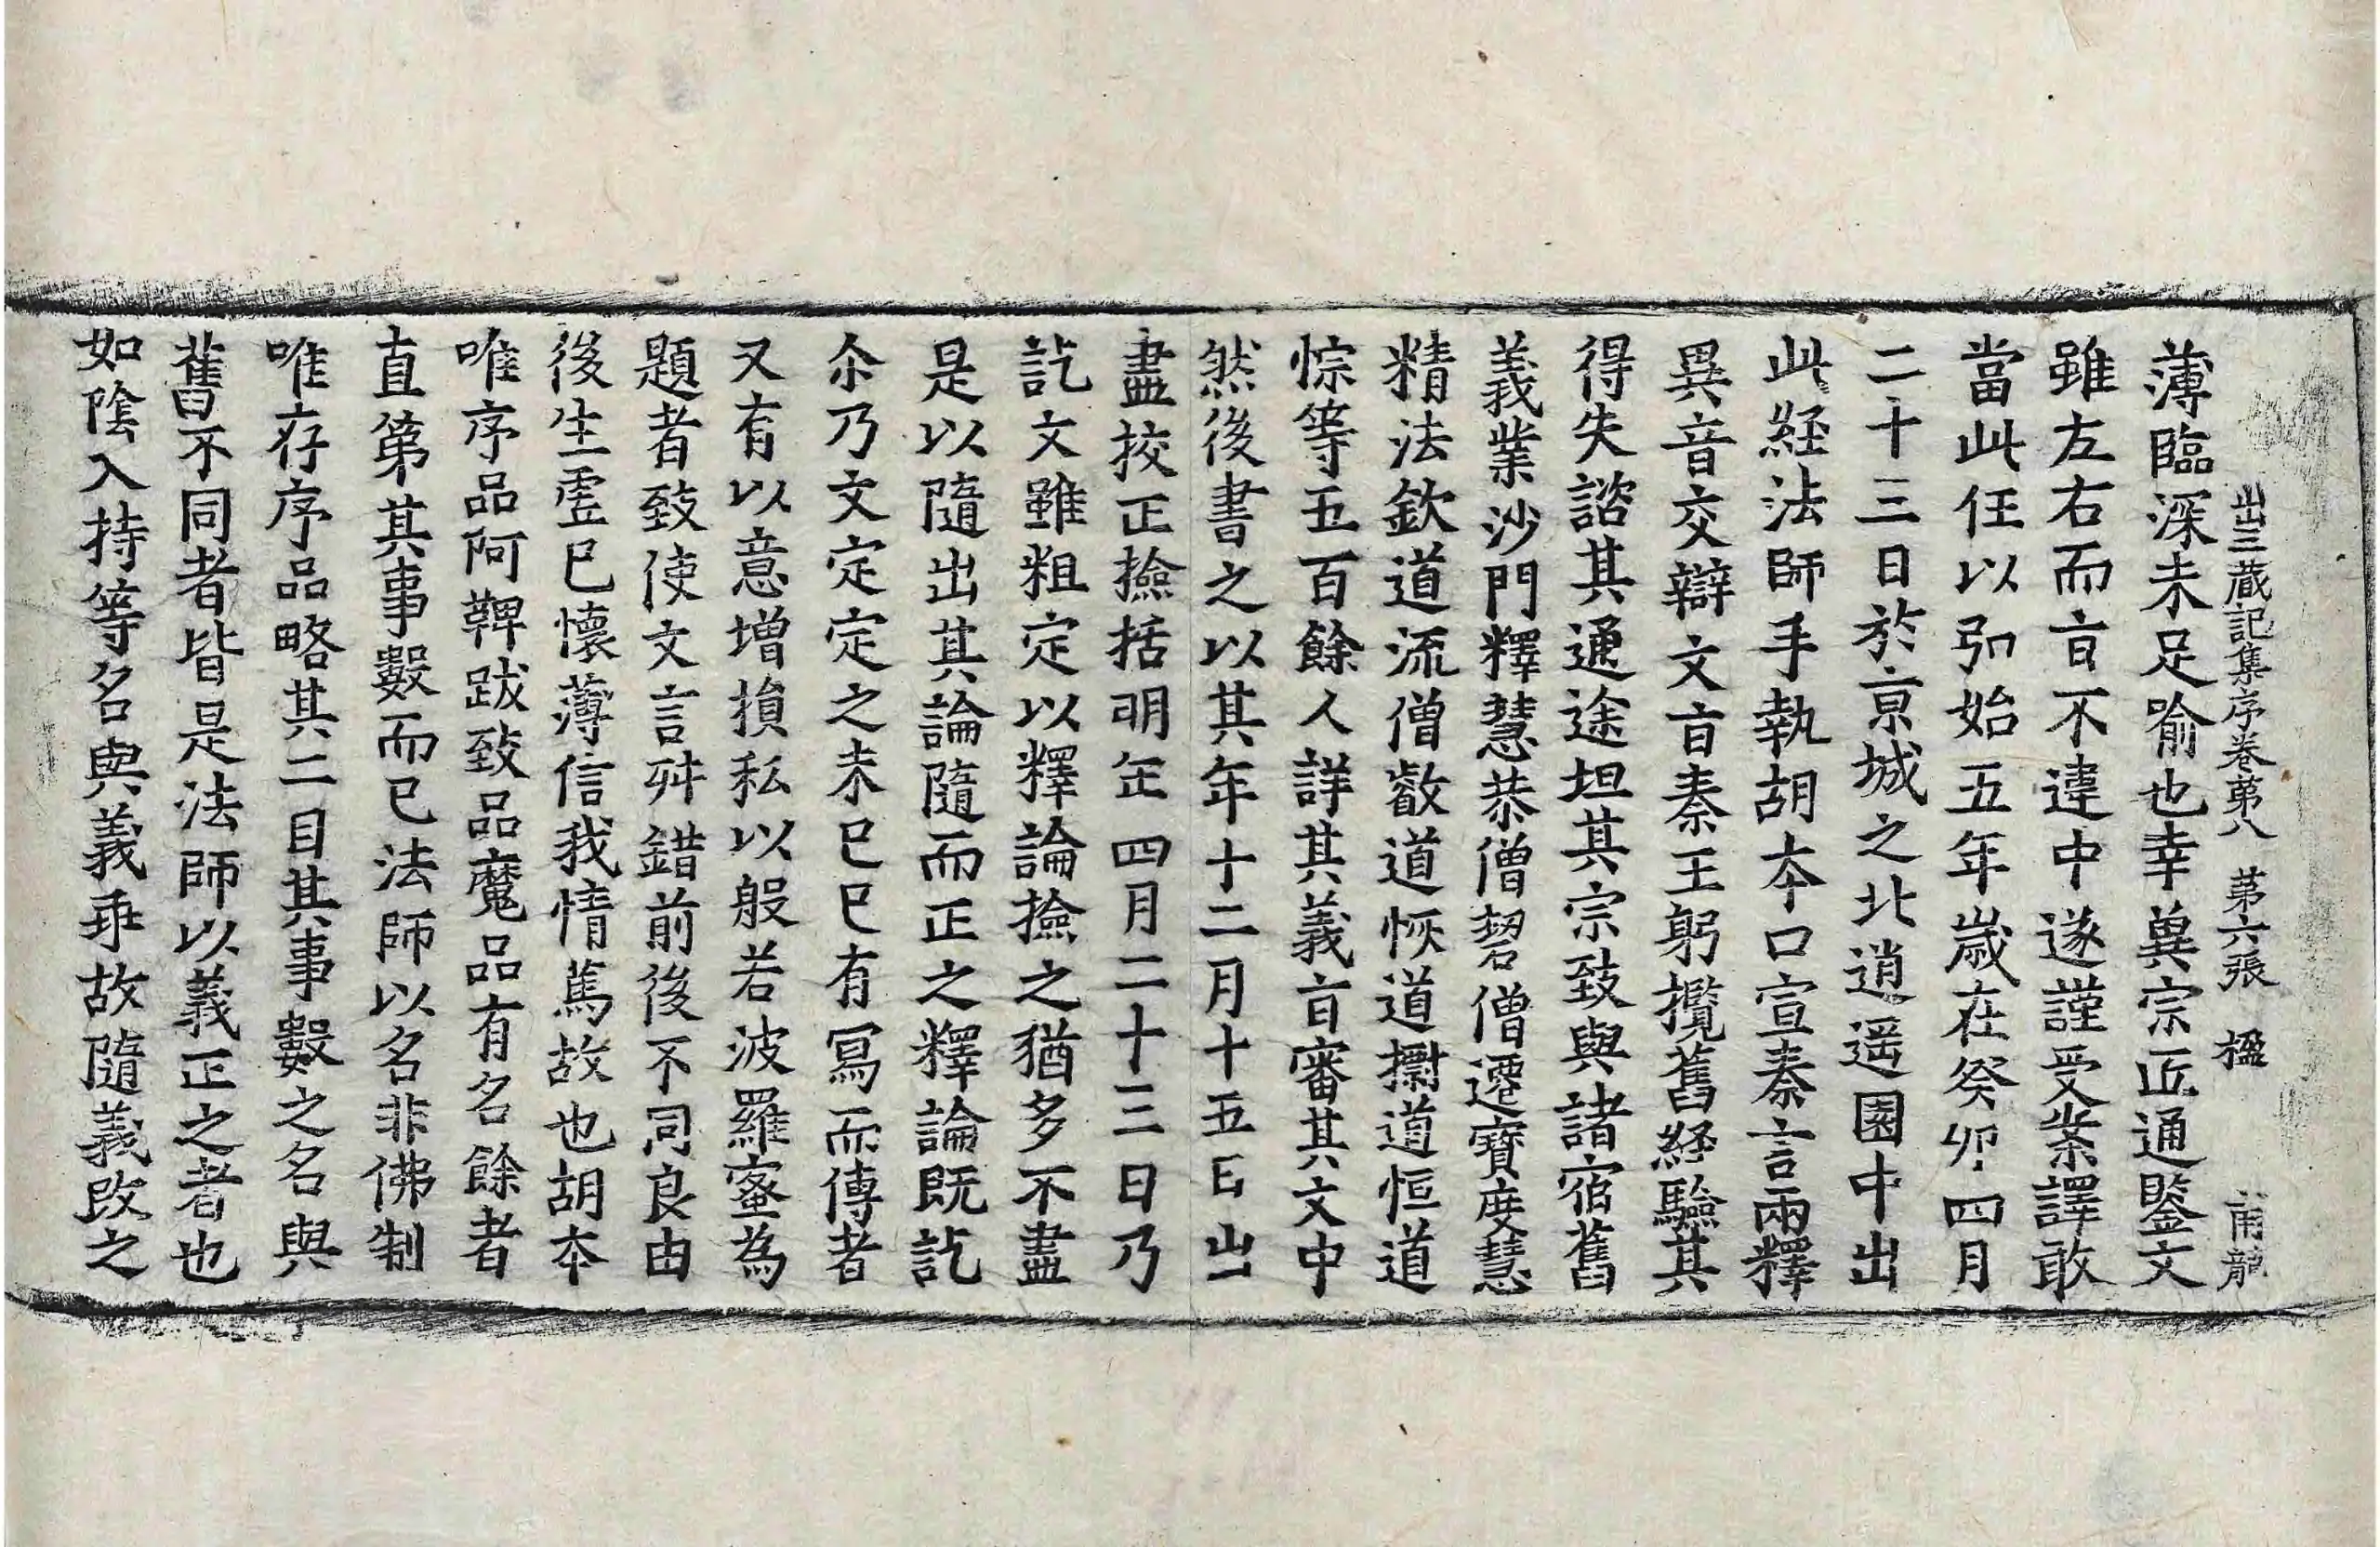 出三蔵記集序卷第八 第六張 楹
薄臨深未足喻也幸冀宗匠通鑒文
雖左右而㫖不違中遂謹受業譯敢
當此任以弘始五年歲在癸卯四月
二十三日於京城之北逍遥園中出
此經法師手執胡本口宣秦言兩釋
異音交辯文㫖秦王躬攬舊經驗其
得失諮其通途坦其宗致與諸宿舊
義業沙門釋慧恭僧䂮僧遷寶度慧
精法欽道流僧叡道恢道檦道恒道
悰等五百餘人詳其義㫖審其文中
然後書之以其年十二月十五日出
盡挍正撿括明年四月二十三日乃
訖文雖粗定以釋論撿之猶多不盡
是以隨出其論隨而正之釋論既訖
尒乃文定定之未已已有寫而傳者
又有以意增損私以般若波羅蜜為
題者致使文言舛錯前後不同良由
後生虛已懷薄信我情篤故也胡本
唯序品阿鞞跋致品魔品有名餘者
直第其事數而已法師以名非佛制
唯存序品略其二目其事數之名與
舊不同者皆是法師以義正之者也
如陰入持等名與義乖故隨義改之